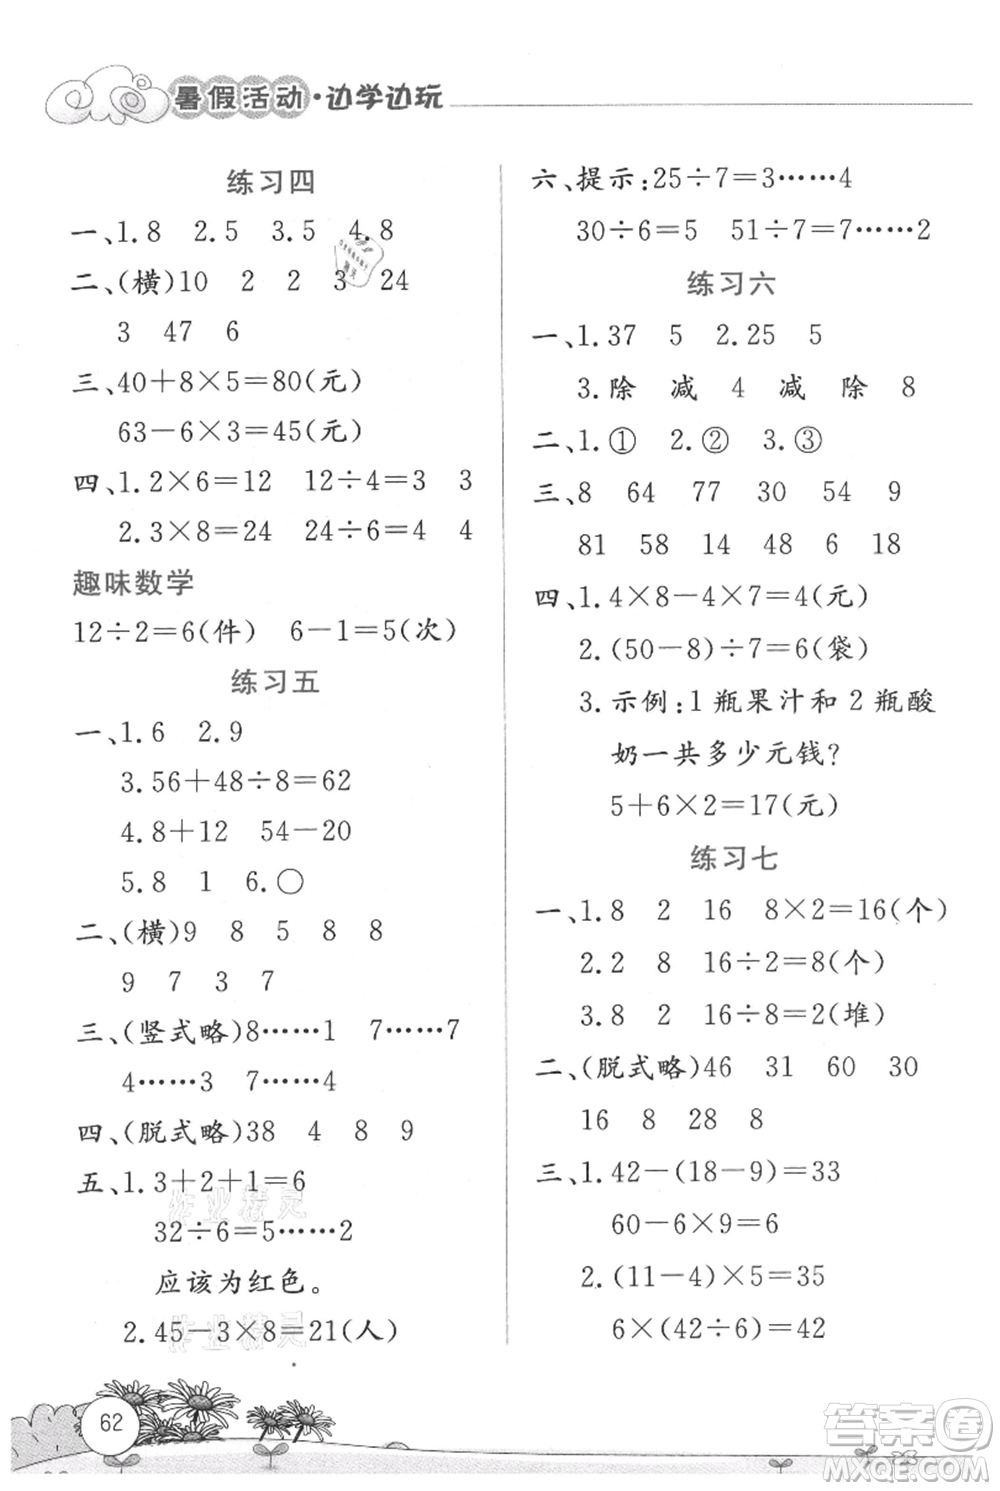 暑假活动·边学边玩
练习四
一、1.8 2.5 3.5 4.8
二、(横)10 2 2 3 24
3 47 6
三、40+8×5=80(元)
63-6×3=45(元)
四、1.2×6=12 12÷4=3 3
2.3×8=24 24÷6=4 4
趣味数学
12÷2=6(件) 6-1=5(次)
练习五
一、1.6 2.9
3.56+48÷8=62
4.8+12 54-20
5.8 1 6.○
二、(横)9 8 5 8 8
9 7 3 7
三、(竖式略)8……1 7……7
4……3 7……4
四、(脱式略)38 4 8 9
五、1.3+2+1=6
32÷6=5……2
应该为红色。
2.45-3×8=21(人)
六、提示:25÷7=3……4
30÷6=5 51÷7=7……2
练习六
一、1.37 5 2.25 5
3.除 减 4 减 除 8
二、1.① 2.② 3.③
三、8 64 77 30 54 9
81 58 14 48 6 18
四、1.4×8-4×7=4(元)
2.(50-8)÷7=6(袋)
3.示例:1瓶果汁和2瓶酸
奶一共多少元钱?
5+6×2=17(元)
练习七
一、1.8 2 16 8×2=16(个)
2.2 8 16÷2=8(个)
3.8 2 16÷8=2(堆)
二、(脱式略)46 31 60 30
16 8 28 8
三、1.42-(18-9)=33
60-6×9=6
2.(11-4)×5=35
6×(42÷6)=42
62
作业精灵
作业精灵
答案圈
MXQE.COM